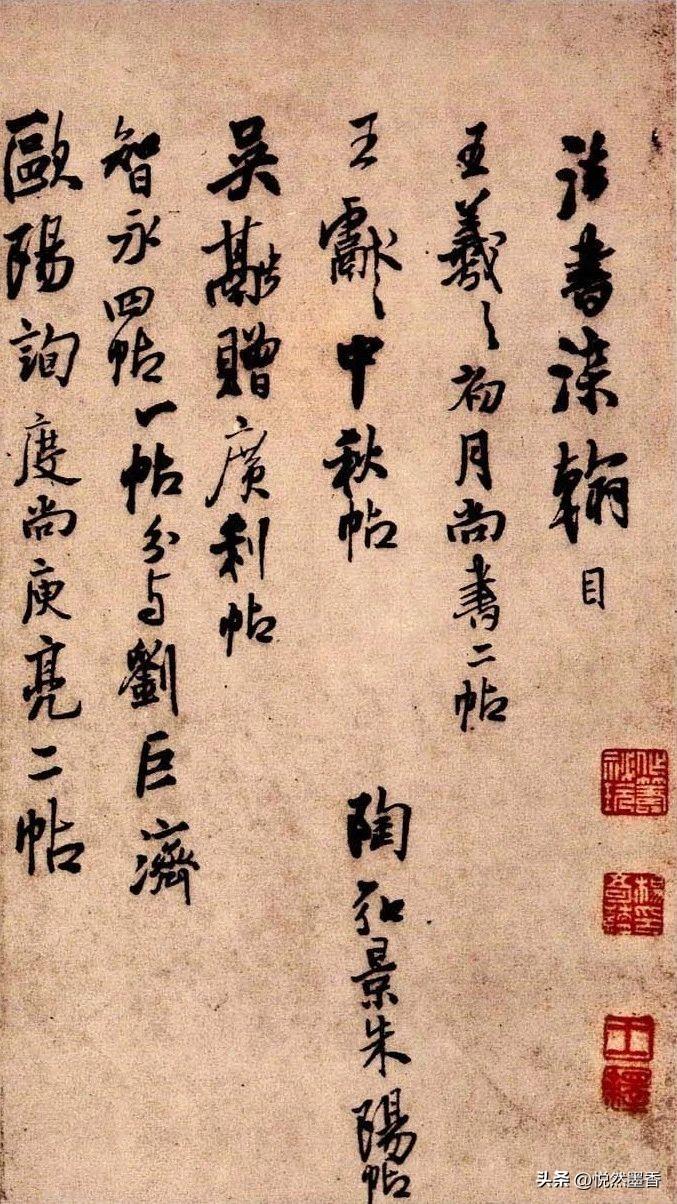 法書染翰目
王羲之初月尚書二帖
王獻之中秋帖
陶弘景朱陽帖
吳融贈廣利帖
智永四帖一帖分与劉巨濟
歐陽詢度尚庾亮二帖
头条 @悦然墨香